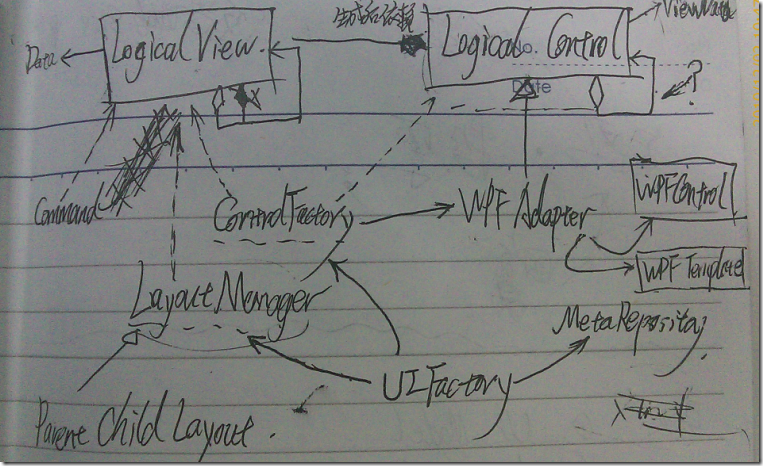 生成和依赖
ViewData
Data
Logical View.
Logical Control
No.
Date
?
Command
Control Factory
WPF Adapter
WPFControl
WPF Template
Layout Manager
MetaRepository
UIFactory
Parent Child Layout.